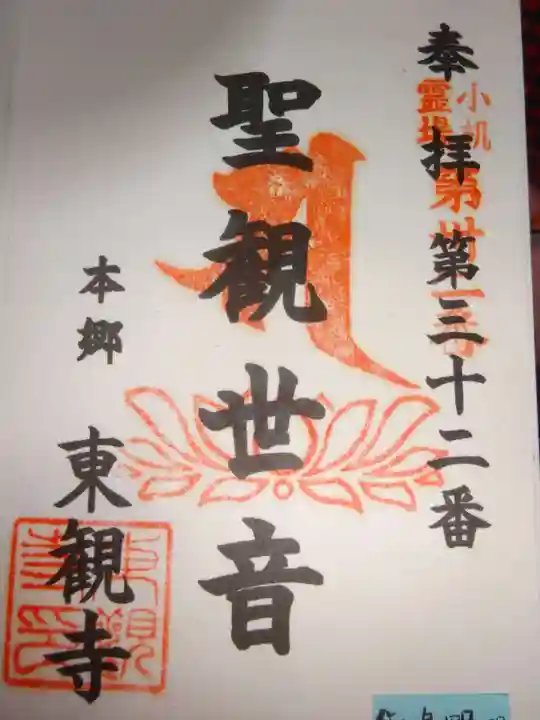 奉拝 第三十二番
小机
霊場
聖観世音
本郷
東観寺